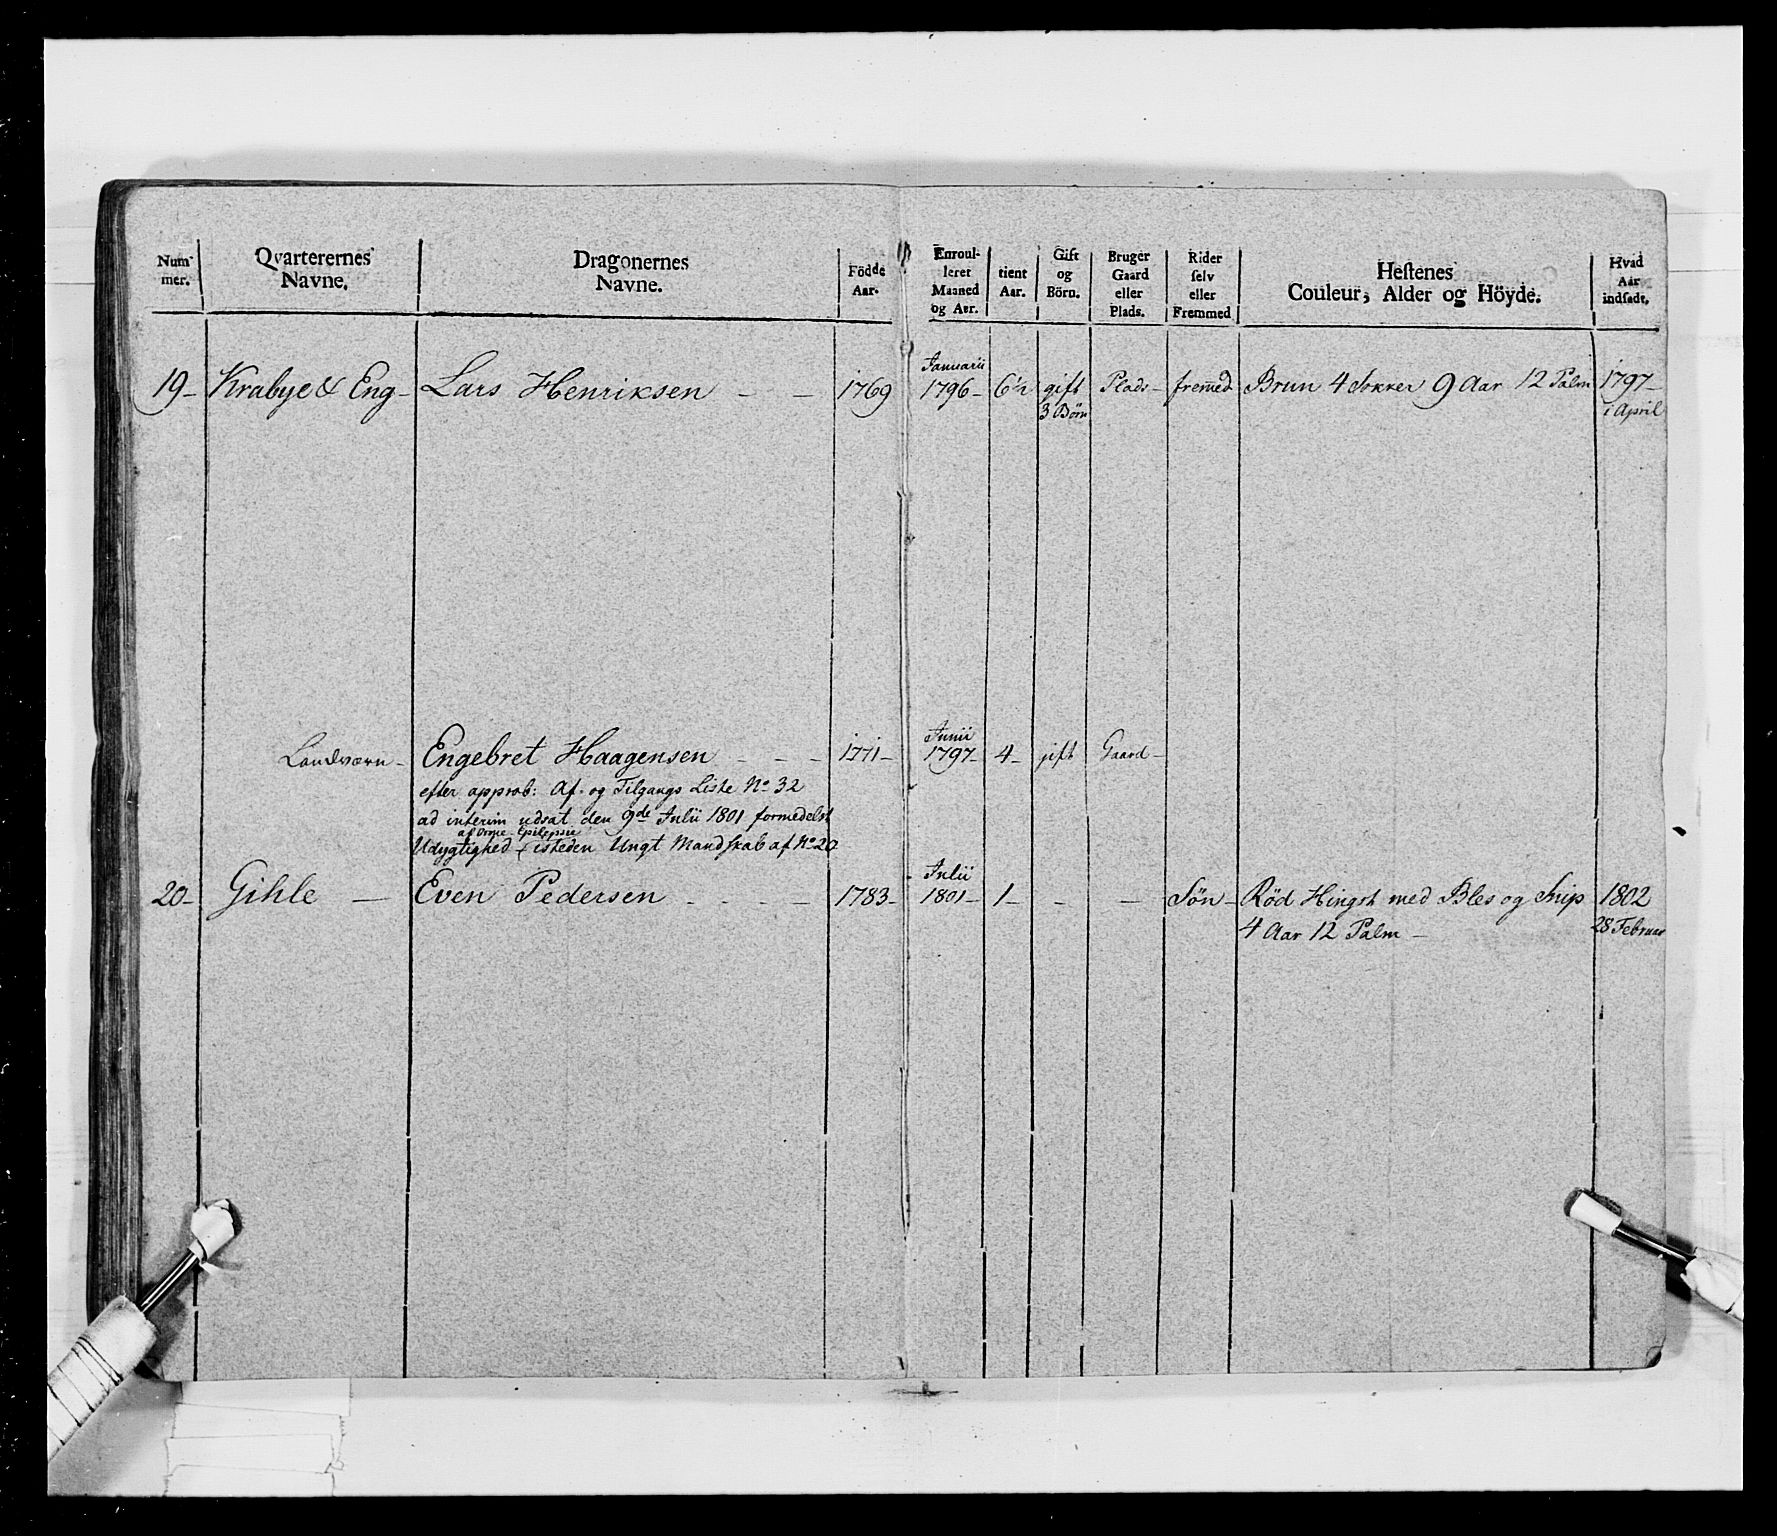 Num- mer. | Qvarterernes Navne. | Dragonernes Navne. | Födde Aar. | Enroul- leret Maaned og Aar. | tient Aar. | Gift og Börn. | Bruger Gaard eller Plads. | Rider selv eller Fremmed | Hestenes Couleur, Alder og Höyde. | Hvad Aar indsadt.
Januarii
19- Krabye & Eng- Lars Henriksen - - 1769 1796- 6½ gift Plads- fremed Brun 4 Sokker 9 Aar 12 Palm 1797-
3 Börn i April
Junii
Landværn- Engebret Haagensen - - - 1771- 1797- 4- gift Gaard-
efter approb: Af- og Tilgangs Liste No 32
ad interim udsat den 9de Julii 1801 formedelst
af Orme-Epilepsie
Udygtighed isteden Ungt Mandskab af No 20
Julii
20- Gihle - Even Pedersen - - - - 1783- 1801- 1- - - Søn- Rød Hingst med Bles og Snip 1802
4 Aar 12 Palm - 28 Februar